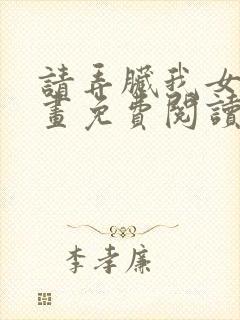 請弄臟我女
畫免費閱讀
李孝廉